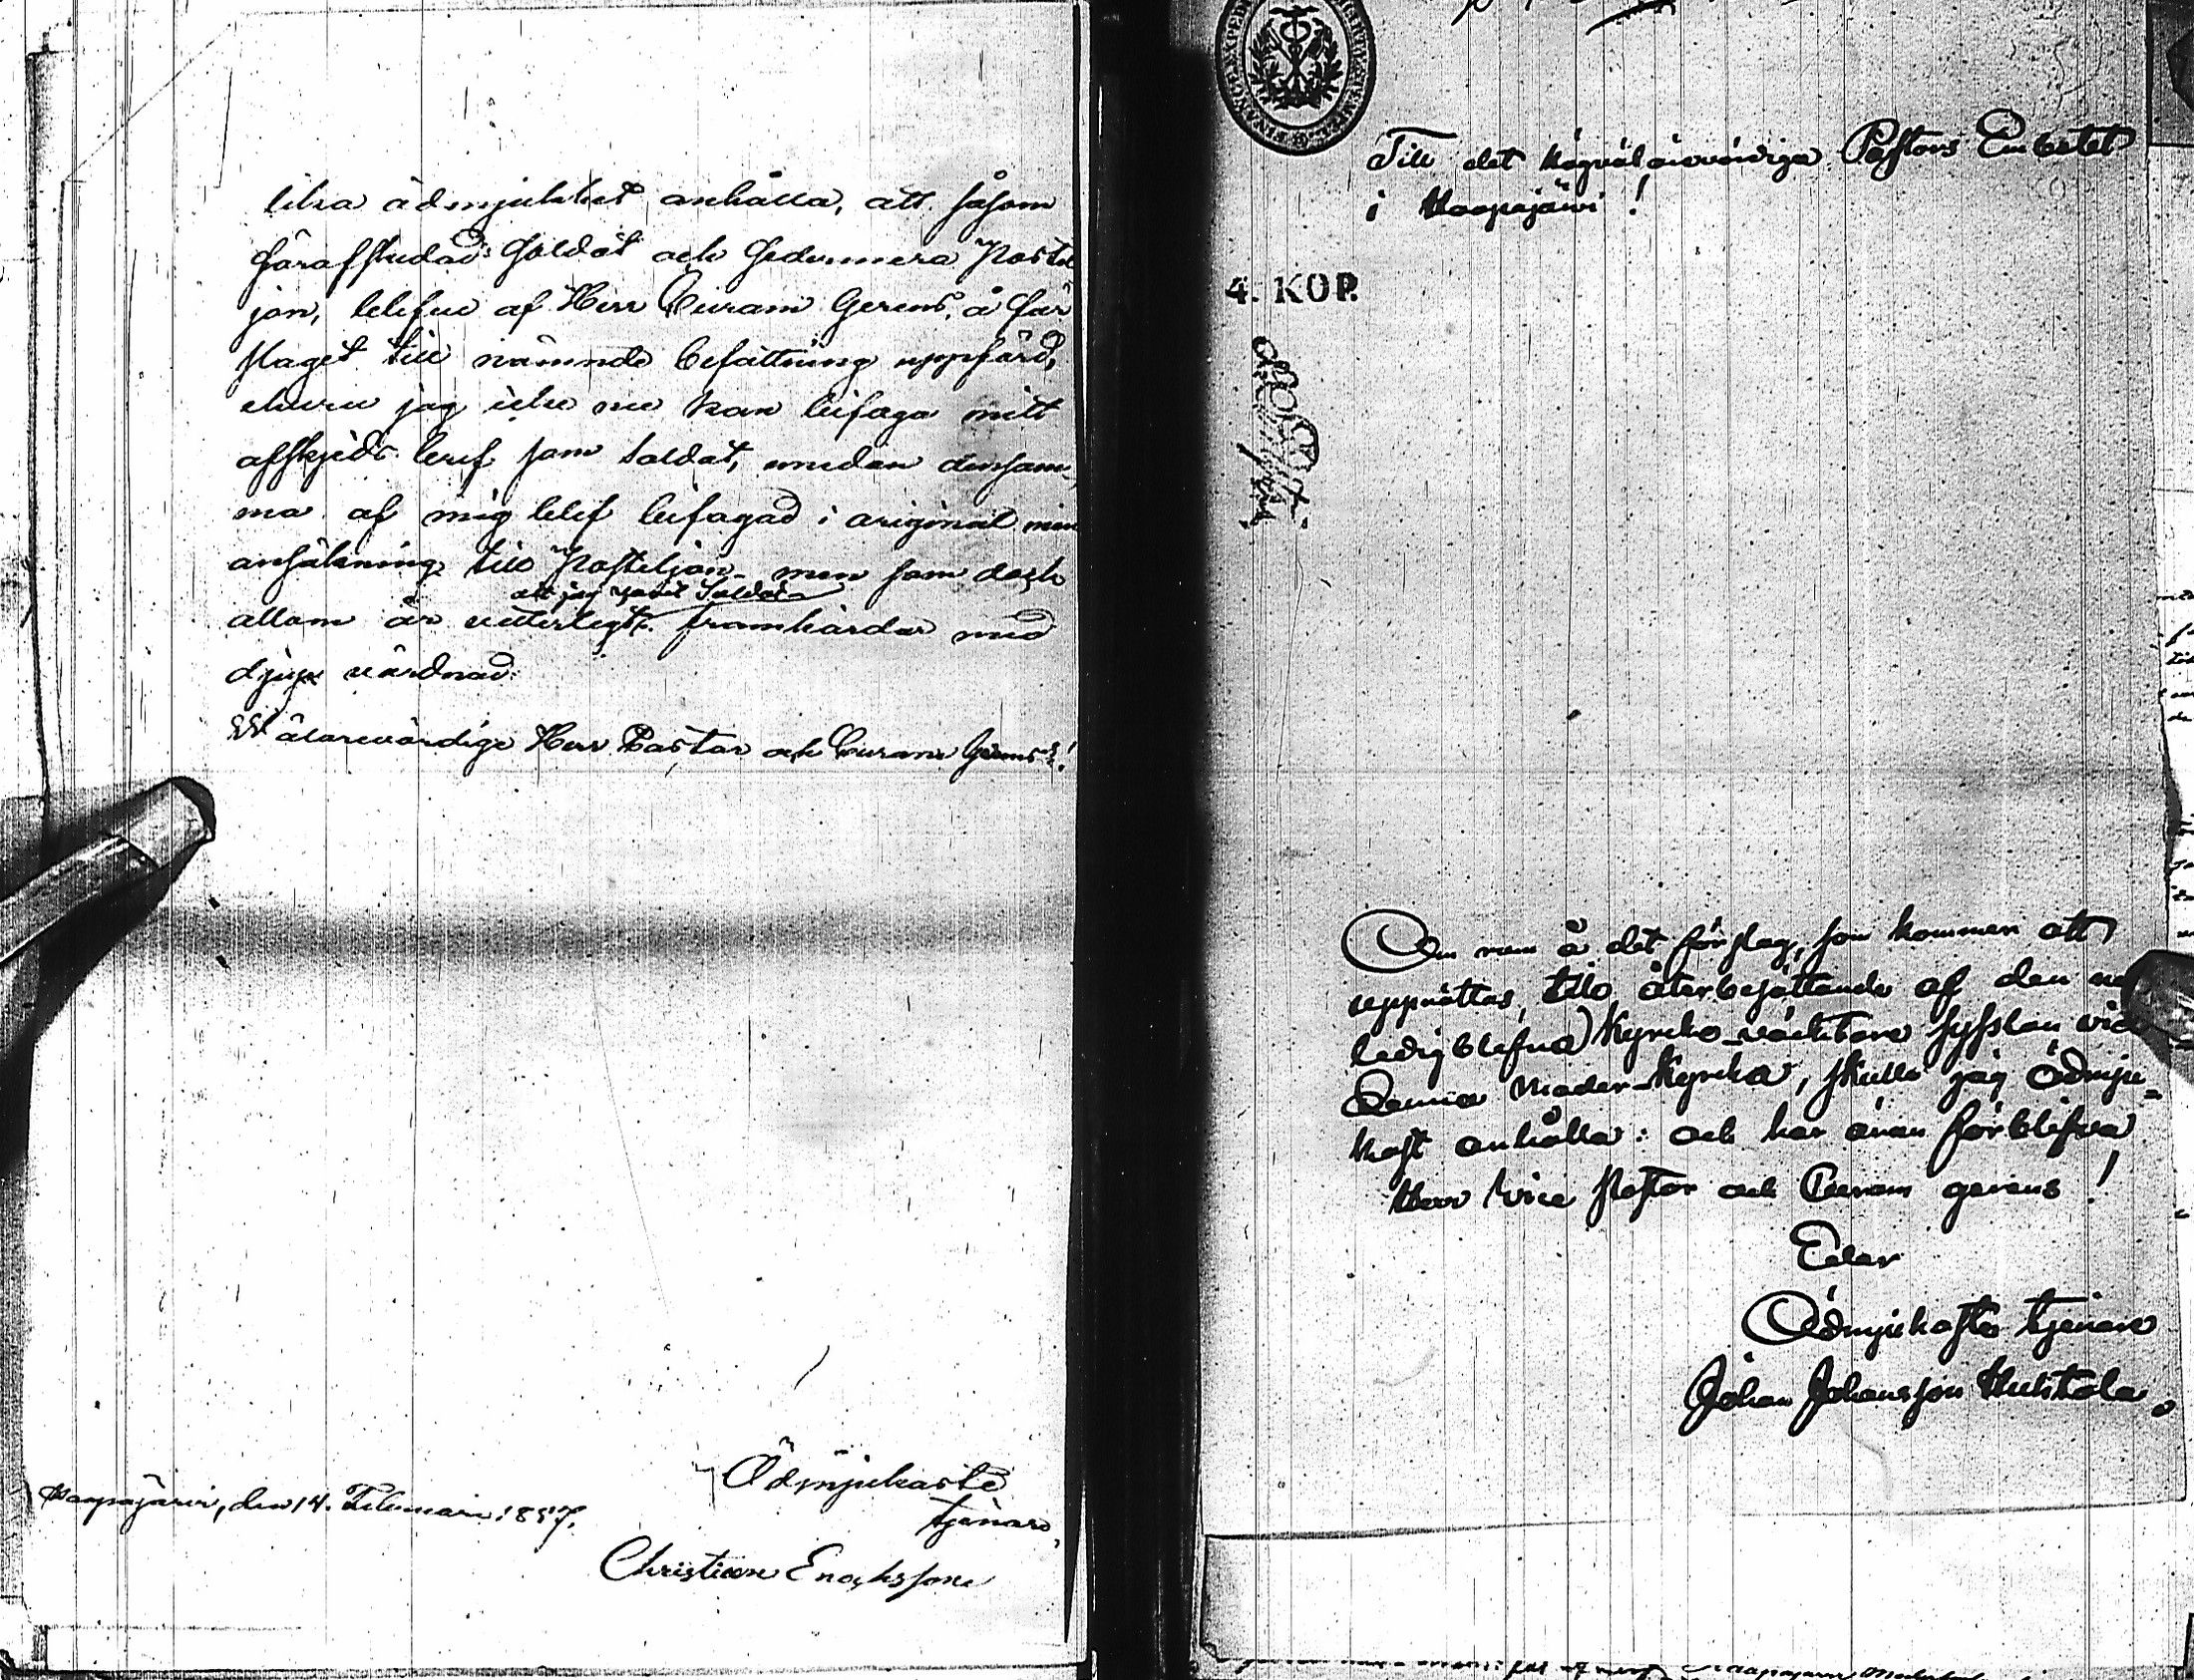 lika ödmjukhet anhålla, att såsom
förafskedad Soldat och sedermera Postil
jon, blifva af Herr Curam Gerens, å för
slaget till nämnde befattning uppförd,
ehuru jag icke nu kan bifoga mitt
afskjeds bref som Soldat, emedan densam
ma af mig blef bifogad i original min
ansökning till Postiljon men som dock
att jag varit Soldat
allom är vetterligt framhärdar med
djup vördnad:
Wälärevördige Herr Pastor och Curam Gerens!
Ödmjukaste
tjenare,
Haapajärvi, den 14. Februari 1857.
Christian Enochsson
Till det högvälärevördiga Pastors Embetet
i Haapajärvi!
4. KOP.
Om rum å det förslag, som kommer att
upprättas, till återbesättande af den nu
ledigblefna Kyrko-väcktare sysslan vid
Denna Moder-Kyrka, skulle jag Ödmju=
kast anhålla: och har äran förblifva
Herr Vice Pastor och Curam gerens!
Eder
Ödmjukaste tjenare
Johan Johansson Huhtala.